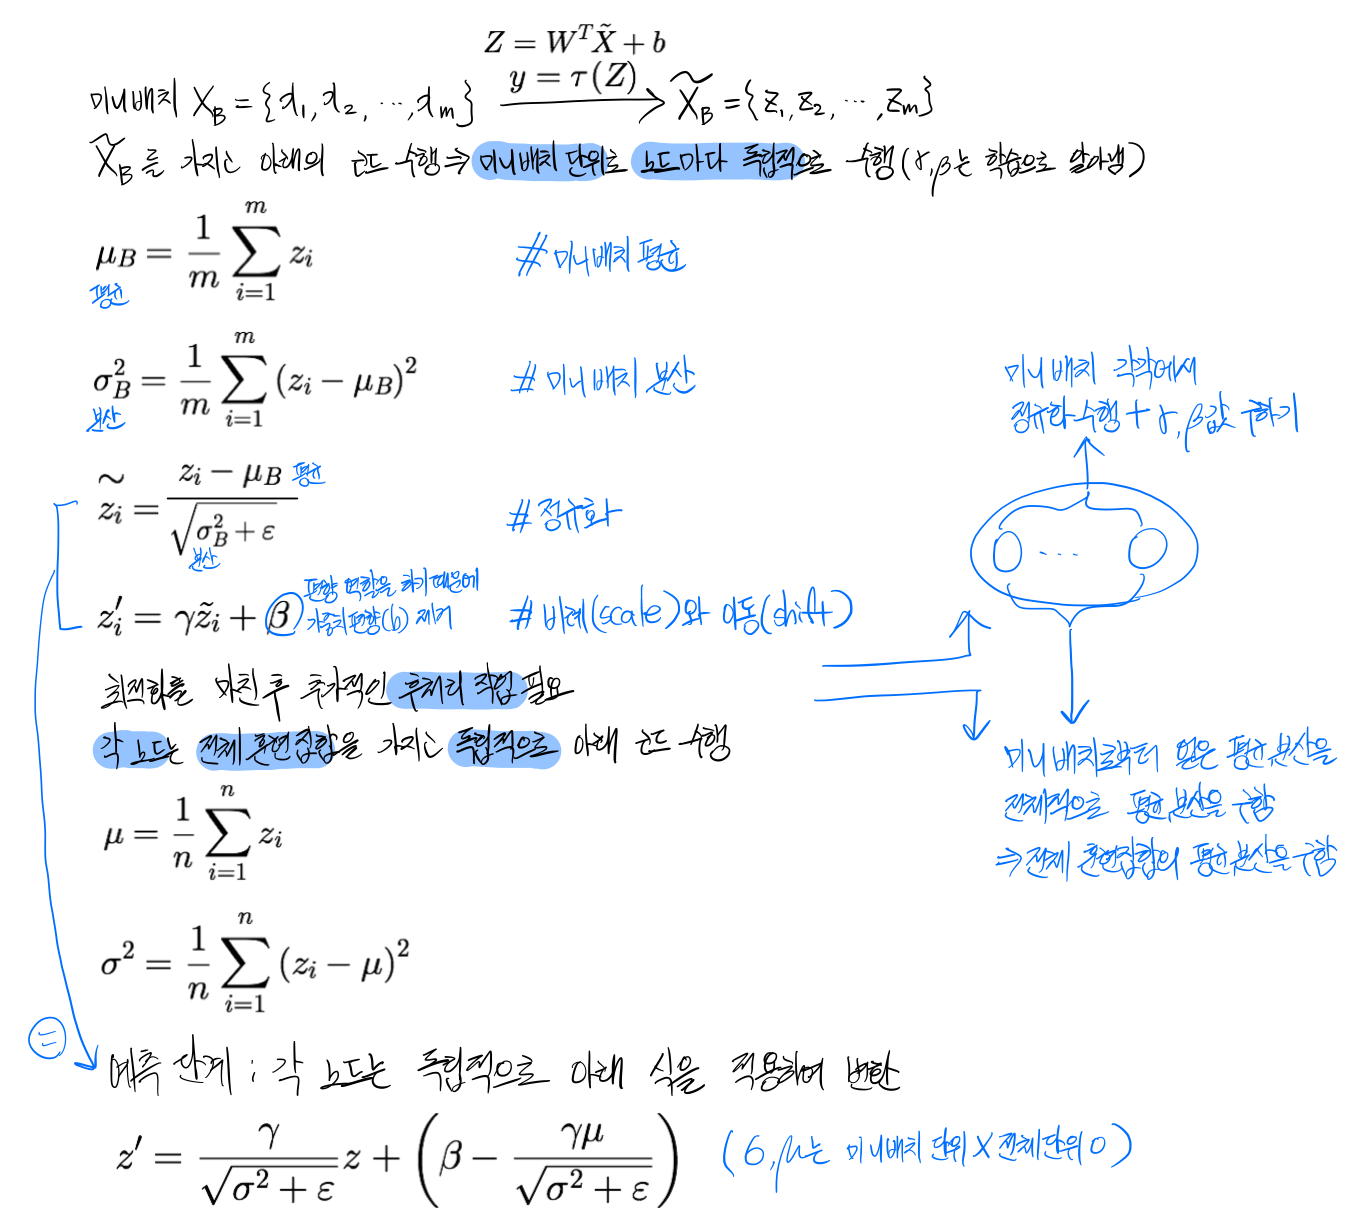 Z = W^T X̃ + b
미니배치 X_B = {x_1, x_2, ⋯, x_m} y = τ(Z) → X̃_B = {z_1, z_2, ⋯, z_m}
X̃_B를 가지고 아래의 코드 수행 ⇒ 미니배치 단위로 노드마다 독립적으로 수행(γ, β는 학습으로 알아냄)
μ_B = 1/m ∑_{i=1}^{m} z_i # 미니배치 평균
평균
σ_B^2 = 1/m ∑_{i=1}^{m} (z_i − μ_B)^2 # 미니배치 분산
분산
미니배치 각각에서
정규화 수행 + γ, β값 구하기
⋯
z̃_i = (z_i − μ_B) / √(σ_B^2 + ε) # 정규화
평균
분산
z'_i = γz̃_i + β # 비례(scale)와 이동(shift)
편향 역할을 하기 때문에
가중치 편향(b) 제거
최적화를 마친 후 추가적인 후처리 작업 필요
각 노드는 전체 훈련집합을 가지고 독립적으로 아래 코드 수행
미니배치로부터 얻은 평균, 분산을
전체적으로 평균, 분산을 구함
⇒ 전체 훈련집합의 평균, 분산을 구함
μ = 1/n ∑_{i=1}^{n} z_i
σ^2 = 1/n ∑_{i=1}^{n} (z_i − μ)^2
=
예측 단계 : 각 노드는 독립적으로 아래 식을 적용하여 변환
z' = γ/√(σ^2 + ε) z + (β − γμ/√(σ^2 + ε)) (σ, μ는 미니배치 단위 X 전체 단위 O)